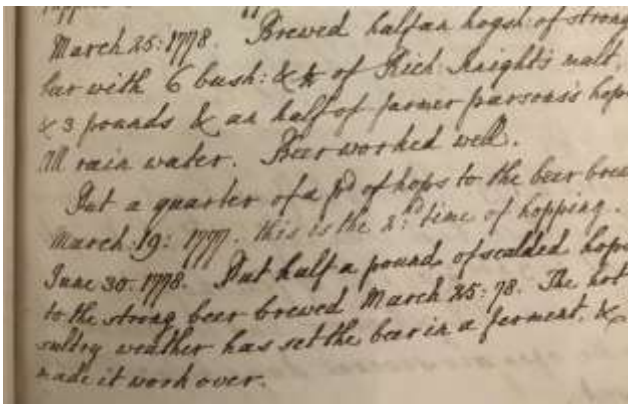 March 25: 1778. Brewed half an hogsh: of strong
beer with 6 bush: & ½ of Rich. Knight's malt,
& 3 pounds & an half of farmer parsons's hops
All rain water. Beer worked well.
Put a quarter of a pd of hops to the beer brew
March 19: 1777. this is the 2nd time of hopping.
June 30. 1778. Put half a pound of scalded hops
to the strong beer brewed March 25: 78. The hot
sultry weather has set the beer in a ferment, &
made it work over.